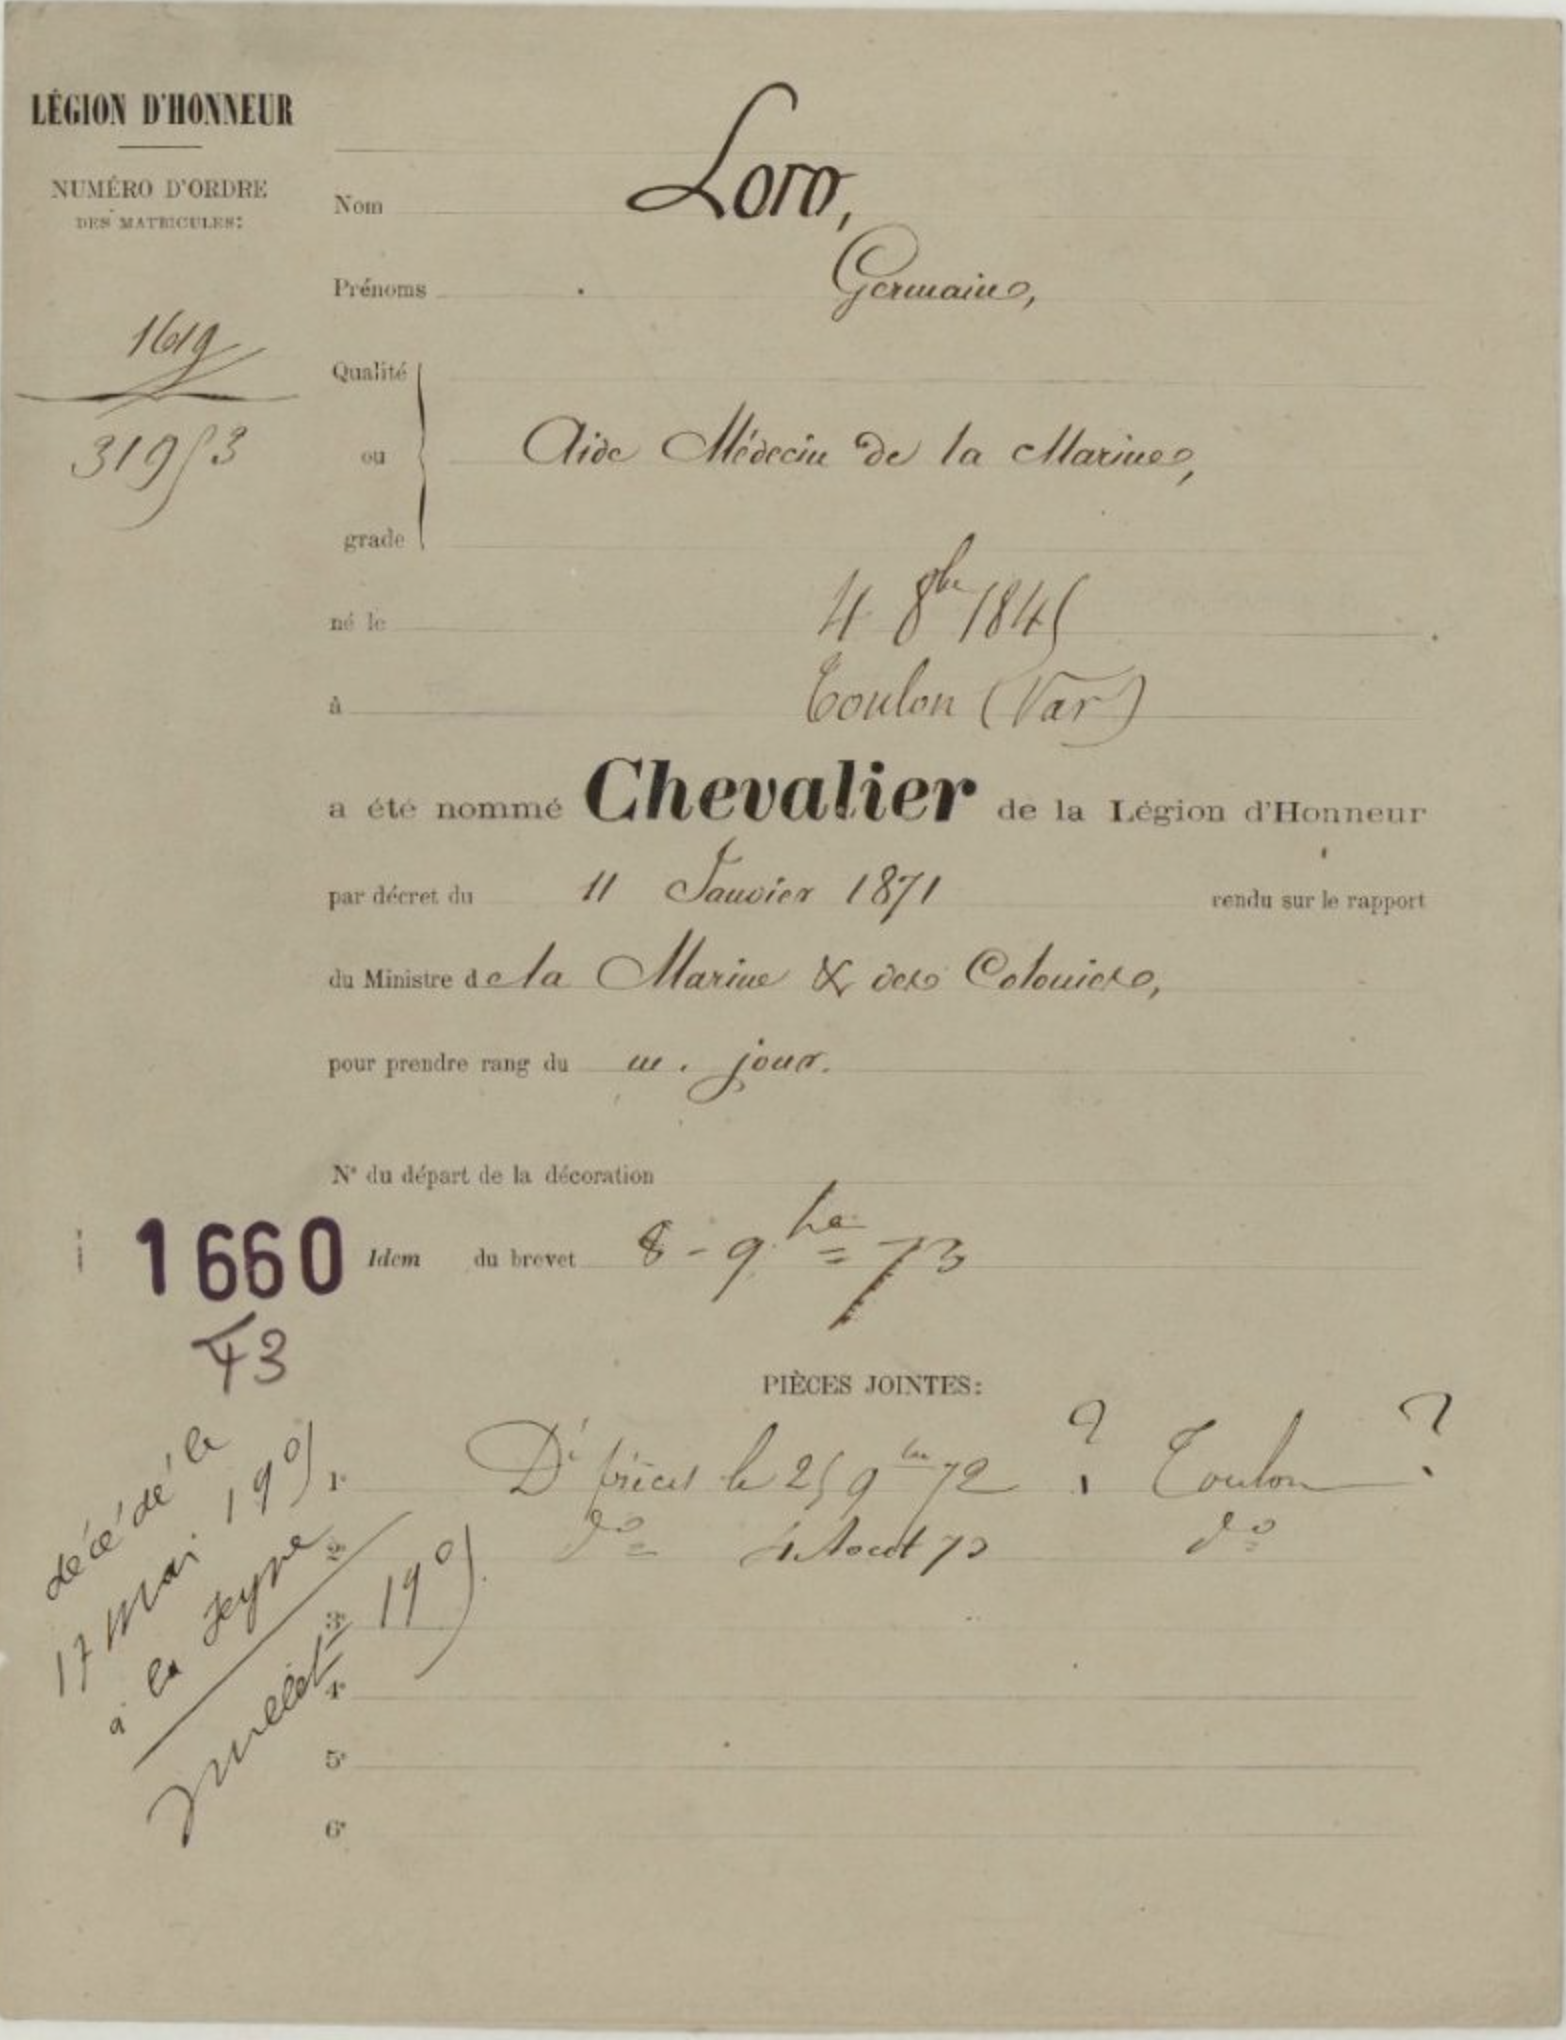 LÉGION D'HONNEUR
NUMÉRO D'ORDRE
DES MATRICULES:
1619
31953
Nom Loro,
Prénoms Germain,
Qualité
ou Aide Médecin de la Marine,
grade
né le 4 8bre 1845
à Toulon (Var)
a été nommé Chevalier de la Légion d'Honneur
par décret du 11 Janvier 1871 rendu sur le rapport
du Ministre de la Marine & des Colonies,
pour prendre rang du m. jour.
N° du départ de la décoration
1660 Idem du brevet 8 - 9bre 73
43
PIÈCES JOINTES:
1° Dr pièces le 25 9bre 72 ? Toulon ?
2° do 4 Aout 73 do
3°
4°
5°
6°
décédé le
17 Mai 1905
à la Seyne
Juillet 1905